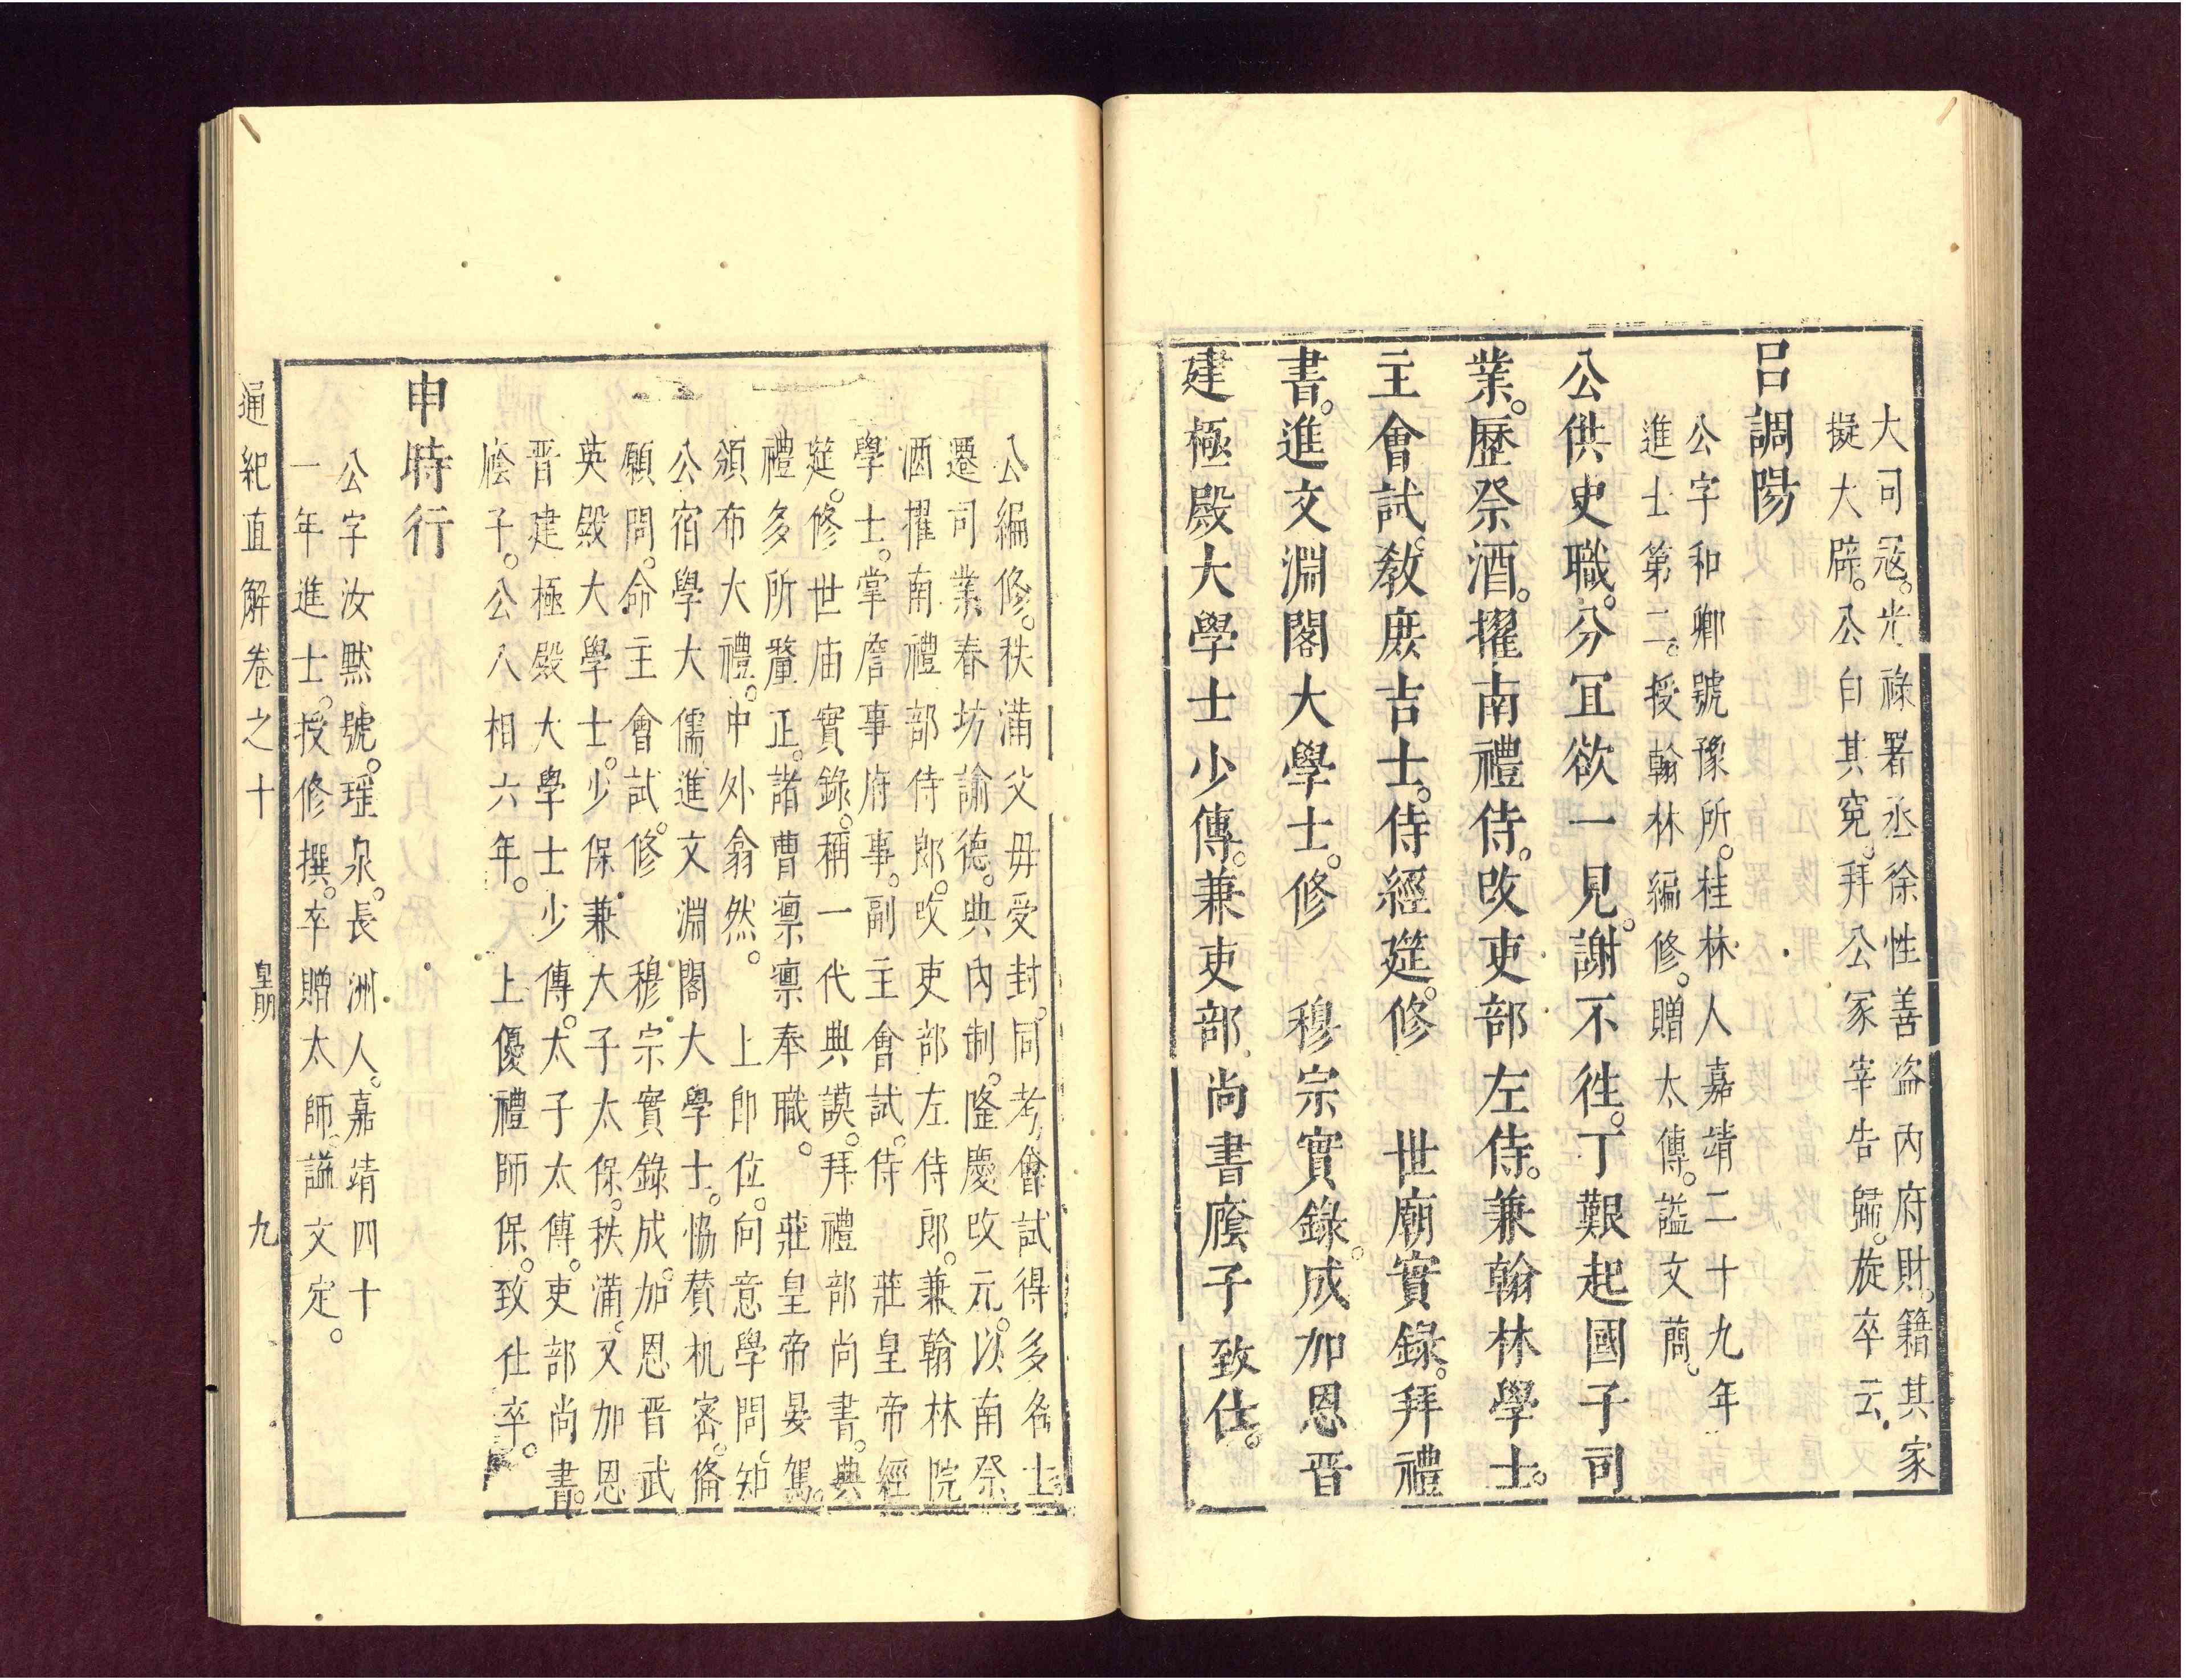 大司寇。光祿署丞徐性善盜內府財。籍其家
擬大辟。公白其冤。拜公冢宰告歸。旋卒云。
呂調陽
公字和卿號豫所。桂林人嘉靖二十九年
進士第二。授翰林編修。贈太傅。謚文簡。
公供史職。分冝欲一見。謝不徃。丁艱起國子司
業。歷祭酒。擢南禮侍。改吏部左侍。兼翰林學士。
主會試。敎庶吉士。侍經筵。修 世廟實錄。拜禮
書。進文淵閣大學士。修 穆宗實錄。成加恩晋
建極殿大學士少傅。兼吏部尚書廕子致仕。
公編修。秩滿父毋受封。同考會試得多名士
遷司業春坊諭德。典內制。隆慶改元。以南祭
酒擢南禮部侍郎。改吏部左侍郎。兼翰林院
學士。掌詹事府事。副主會試。侍 莊皇帝經
筵。修世庙實錄。稱一代典謨。拜禮部尚書。典
禮多所釐正。諸曹凛凛奉職。 莊皇帝晏駕。
頒布大禮。中外翕然。 上卽位。向意學問。知
公宿學大儒進文淵閣大學士。恊賛机宻。俻
顧問。命主會試。修 穆宗實錄成。加恩晋武
英殿大學士。少保兼太子太保。秩滿。又加恩
晋建極殿大學士少傅。太子太傅。吏部尚書。
廕子。公入相六年。 上優禮師保。致仕卒。
申時行
公字汝默號。瑶泉。長洲人。嘉靖四十
一年進士。授修撰。卒贈太師。謚文定。
通紀直解卷之十 皇明 九